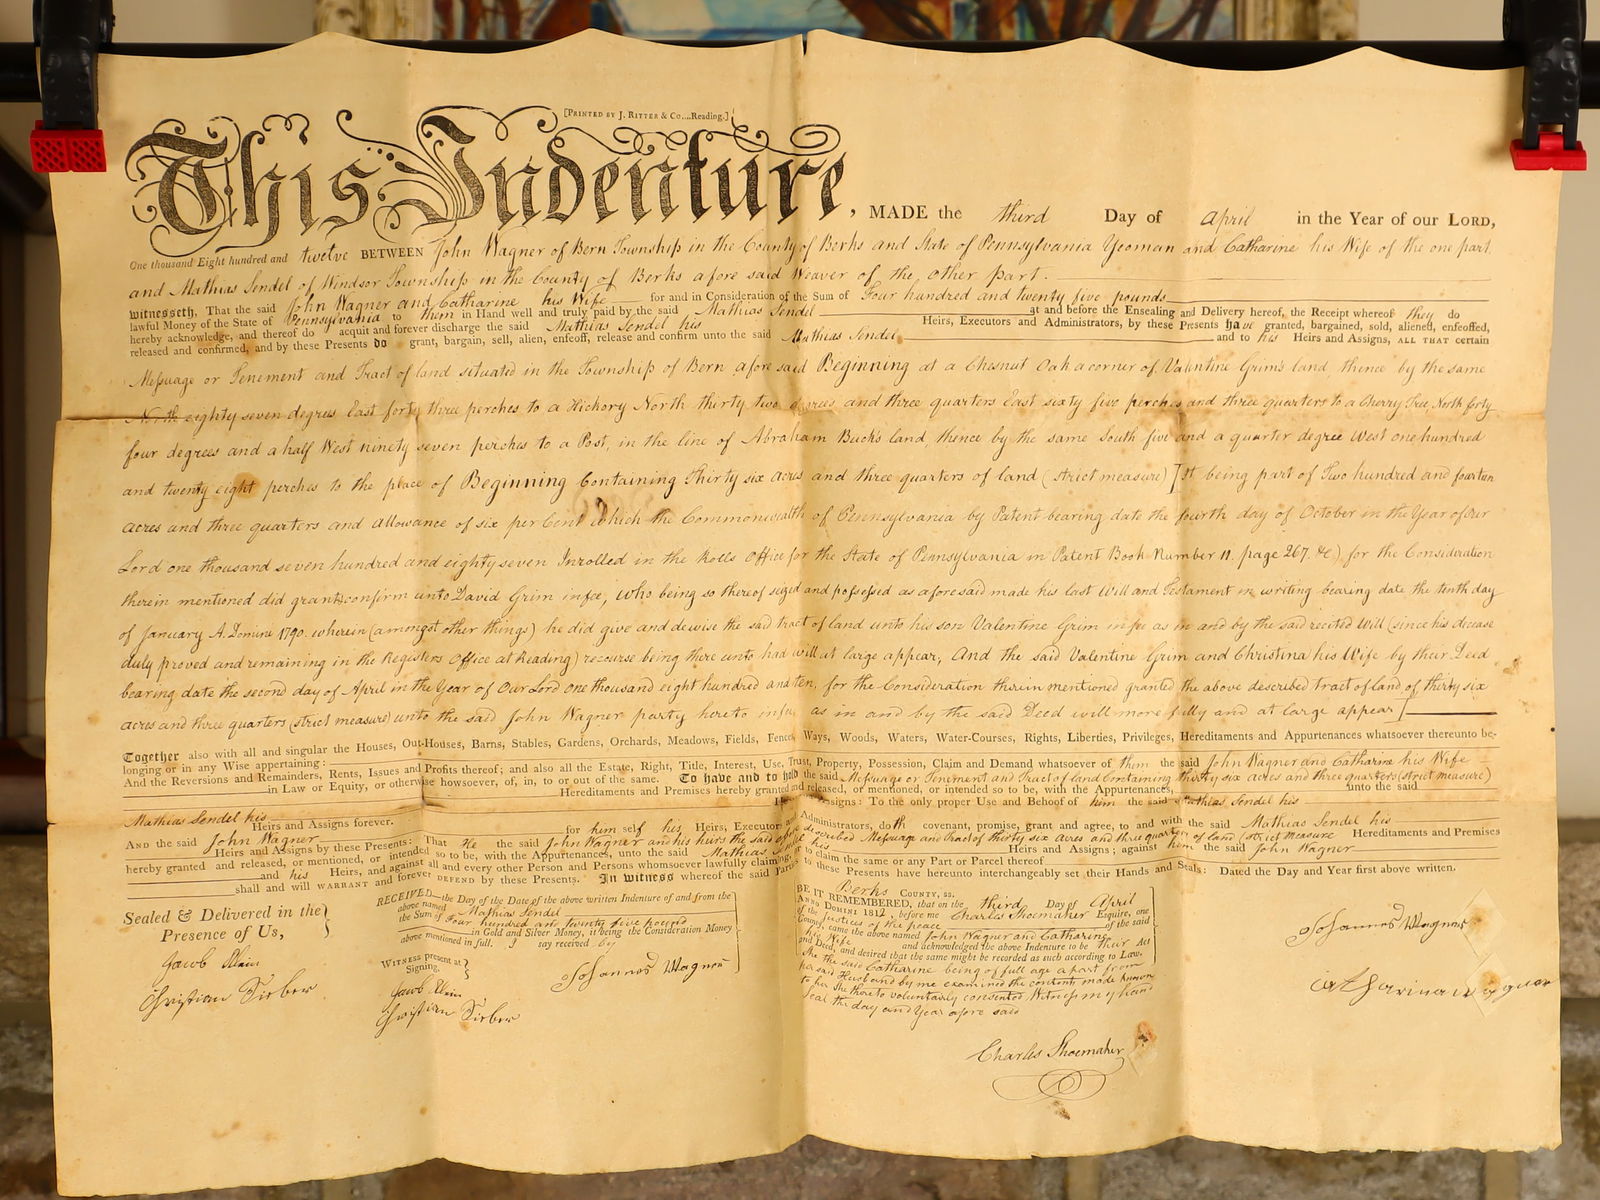 [PRINTED BY J. RITTER & Co....Reading.]
This Indenture, MADE the third Day of April in the Year of our LORD,
One thousand Eight hundred and twelve BETWEEN John Wagner of Bern Township in the County of Berks and State of Pennsylvania Yeoman and Catharine his Wife of the one part,
and Mathias Sendel of Windsor Township in the County of Berks afore said Weaver of the, other part.
witnesseth, That the said John Wagner and Catharine his Wife for and in Consideration of the Sum of Four hundred and twenty five pounds
lawful Money of the State of Pennsylvania to them in Hand well and truly paid by the said Mathias Sendel at and before the Ensealing and Delivery hereof, the Receipt whereof they do
hereby acknowledge, and thereof do acquit and forever discharge the said Mathias Sendel his Heirs, Executors and Administrators, by these Presents have granted, bargained, sold, aliened, enfeoffed,
released and confirmed, and by these Presents do grant, bargain, sell, alien, enfeoff, release and confirm unto the said Mathias Sendel and to his Heirs and Assigns, ALL THAT certain
Messuage or Tenement and Tract of land situated in the Township of Bern afore said Beginning at a Chesnut Oak a corner of Valentine Grim's land, thence by the same
North eighty seven degrees East forty three perches to a Hickory North thirty two degrees and three quarters East sixty five perches and three quarters to a Cherry Tree, North forty
four degrees and a half West ninety seven perches to a Post, in the line of Abraham Buck's land thence by the same South five and a quarter degree West one hundred
and twenty eight perches to the place of Beginning Containing Thirty six acres and three quarters of land (strict measure) [It being part of Two hundred and fourteen
acres and three quarters and allowance of six per Cent which the Commonwealth of Pennsylvania by Patent bearing date the fourth day of October in the Year of Our
Lord one thousand seven hundred and eighty seven Inrolled in the Rolls Office for the State of Pennsylvania in Patent Book Number 11. page 267. &c) for the Consideration
therein mentioned did grant & confirm unto David Grim in fee, who being so thereof seized and possessed as aforesaid made his last Will and Testament in writing bearing date the tenth day
of January A. Domini 1790. wherein (amongst other things) he did give and dewise the said tract of land unto his son Valentine Grim in fee as in and by the said recited Will (since his decease
duly proved and remaining in the Registers Office at Reading) recourse being there unto had will at large appear, And the said Valentine Grim and Christina his Wife by their Deed
bearing date the second day of April in the Year of Our Lord one thousand eight hundred and ten, for the Consideration therein mentioned granted the above described tract of land of thirty six
acres and three quarters (strict measure) unto the said John Wagner party hereto in fee as in and by the said Deed will more fully and at large appear]
Together also with all and singular the Houses, Out-Houses, Barns, Stables, Gardens, Orchards, Meadows, Fields, Fences, Ways, Woods, Waters, Water-Courses, Rights, Liberties, Privileges, Hereditaments and Appurtenances whatsoever thereunto be-
longing or in any Wise appertaining:
And the Reversions and Remainders, Rents, Issues and Profits thereof; and also all the Estate, Right, Title, Interest, Use, Trust, Property, Possession, Claim and Demand whatsoever of them the said John Wagner and Catharine his Wife
in Law or Equity, or otherwise howsoever, of, in, to or out of the same. To have and to hold the said Messuage or Tenement and Tract of land Containing thirty six acres and three quarters (strict measure)
Hereditaments and Premises hereby granted and released, or mentioned, or intended so to be, with the Appurtenances, unto the said
Mathias Sendel his Heirs and Assigns: To the only proper Use and Behoof of him the said Mathias Sendel his
Heirs and Assigns forever.
AND the said John Wagner for him self his Heirs, Executors and Administrators, doth covenant, promise, grant and agree, to and with the said Mathias Sendel his
Heirs and Assigns by these Presents: That He the said John Wagner and his heirs the said above described Messuage and Tract of thirty six acres and three quarters of land strict measure Hereditaments and Premises
hereby granted and released, or mentioned, or intended so to be, with the Appurtenances, unto the said Mathias Sendel his Heirs and Assigns; against him the said John Wagner
and his Heirs, and against all and every other Person and Persons whomsoever lawfully claiming, or to claim the same or any Part or Parcel thereof
shall and will WARRANT and forever DEFEND by these Presents. In witness whereof the said Parties to these Presents have hereunto interchangeably set their Hands and Seals: Dated the Day and Year first above written.
Sealed & Delivered in the
Presence of Us,
Jacob Klein
Christian Sieber
RECEIVED the Day of the Date of the above written Indenture of and from the
above named Mathias Sendel
the Sum of Four hundred and twenty five pound
in Gold and Silver Money, it being the Consideration Money
above mentioned in full. I say received by
WITNESS present at
Signing,
Jacob Klein
Christian Sieber
Johannes Wagner
Berks COUNTY, ss.
BE IT REMEMBERED, that on the third Day of April
ANNO DOMINI 1812, before me Charles Shoemaker Esquire, one
of the Justices of the peace of the said
County, came the above named John Wagner and Catharine
his Wife and acknowledged the above Indenture to be their Act
and Deed, and desired that the same might be recorded as such according to Law.
She the said Catharine being of full age apart from
her said Husband by me examined the contents made known
to her She thereto voluntarily consented Witness my hand
Seal the day and Year afore said
Charles Shoemaker
Johannes Wagner
Catharina Wagner